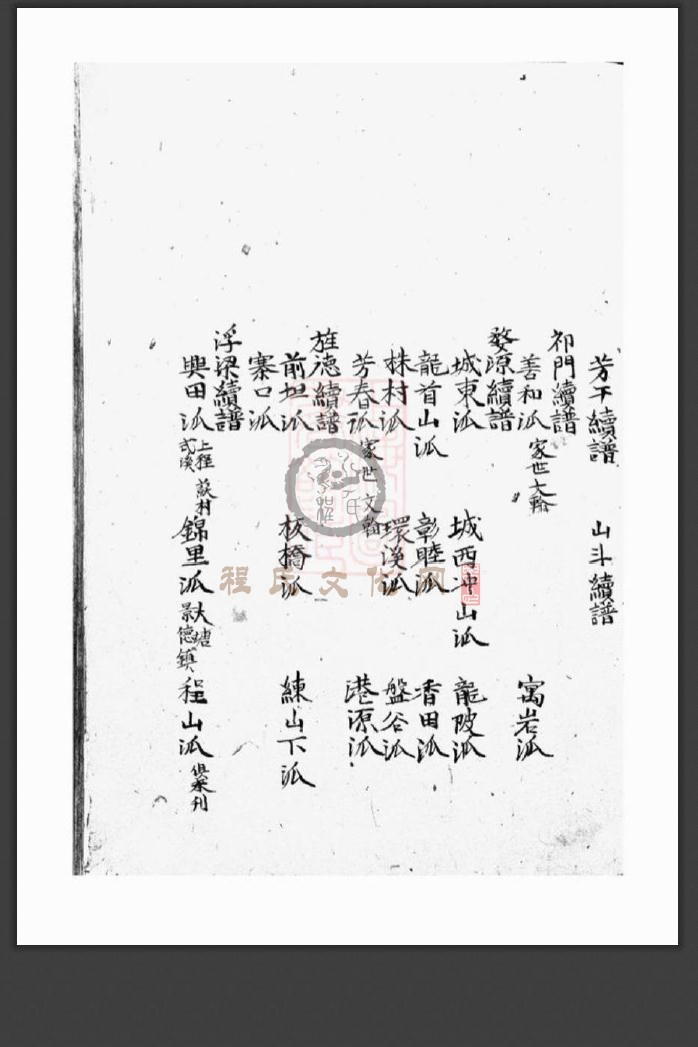 芳下續譜 山斗續譜
祁門續譜
善和派 家世文翰 寓岩派
婺源續譜
城東派 城西冲山派 龍陂派
龍首山派 彰睦派 香田派
株村派 環溪派 盤谷派
芳春派 家世文翰 港源派
旌德續譜
前坦派 板橋派 練山下派
寨口派
浮梁續譜
興田派 上程 蘇村 式溪 錦里派 大塘 景德鎮 程山派 俱未刊
程氏文化网